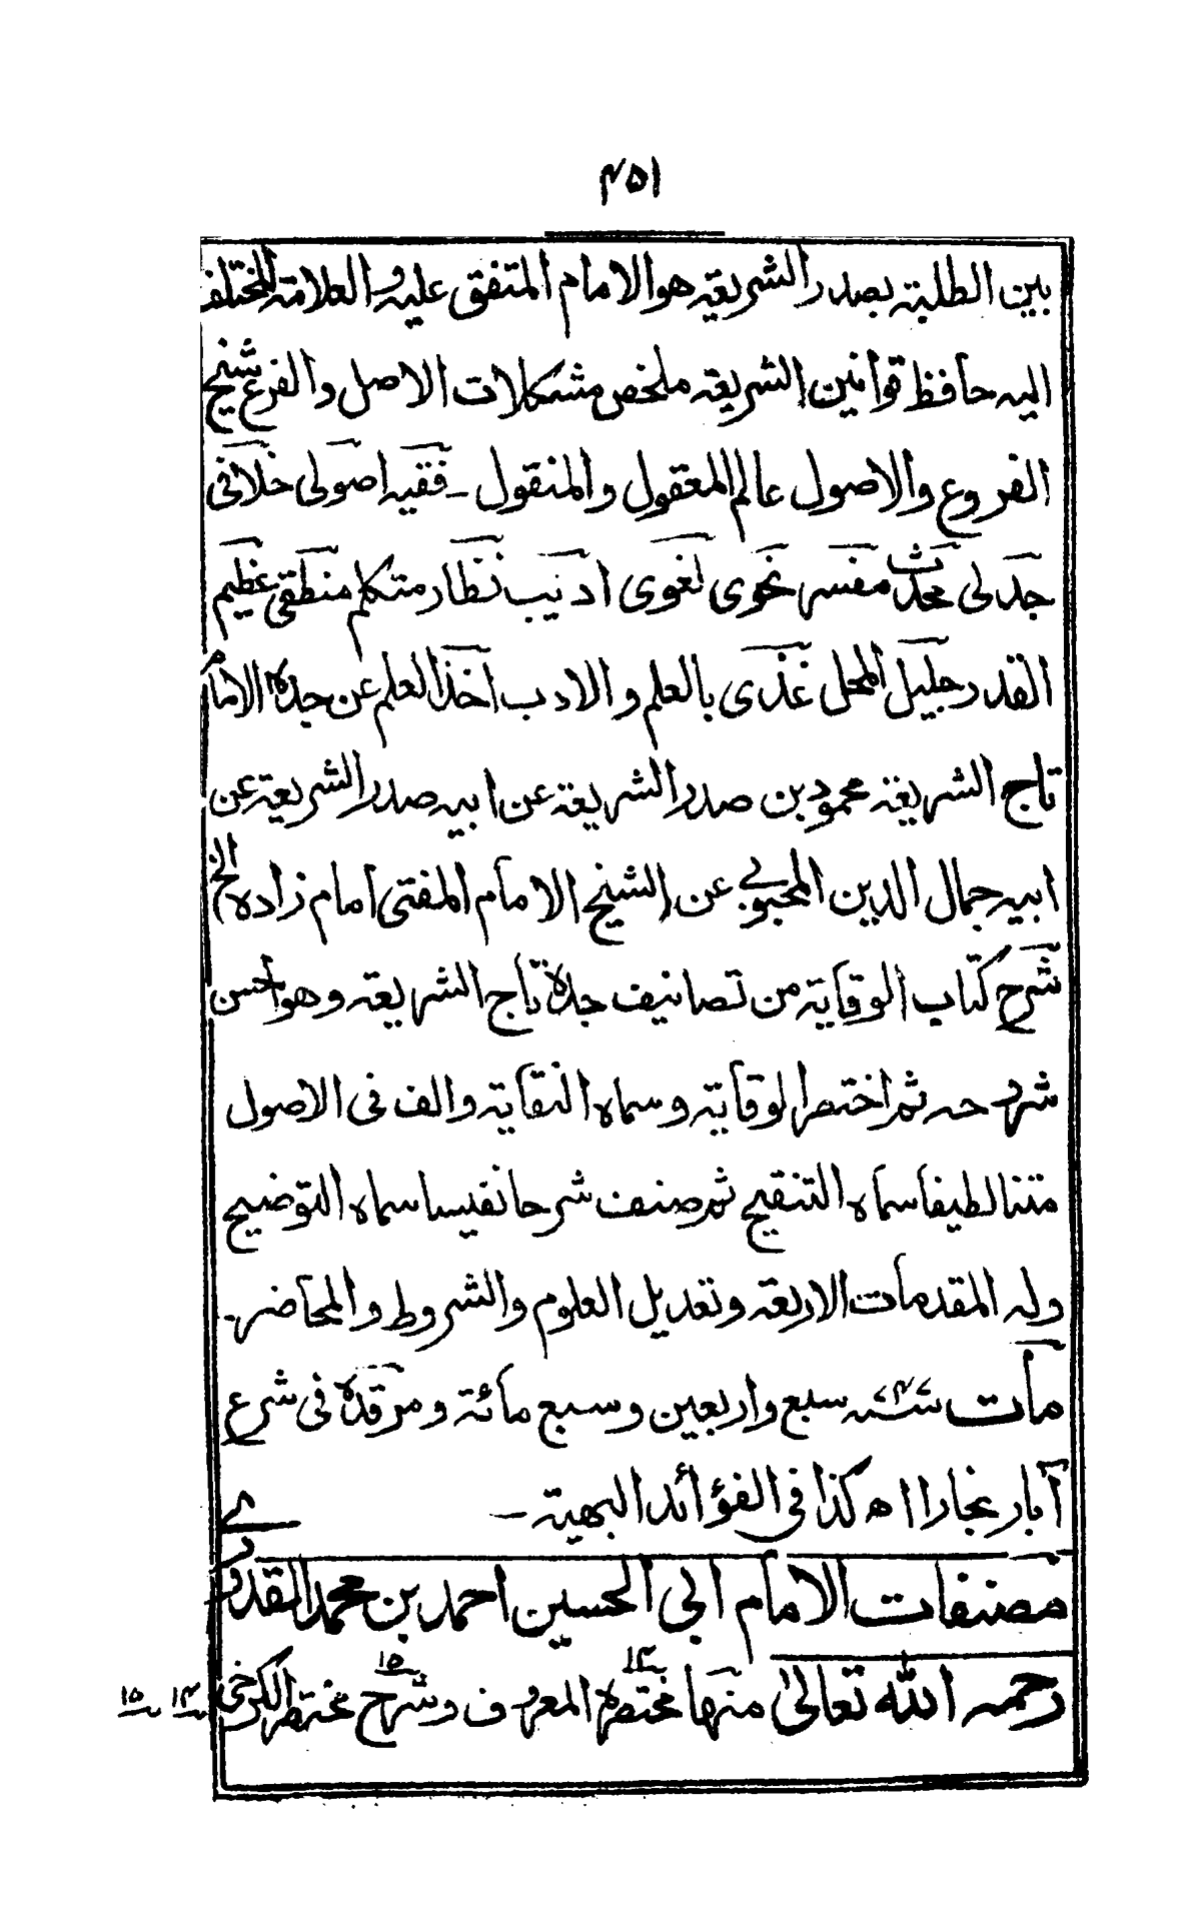 ۴۵۱
بين الطلبة بصدر الشريعة هو الامام المتفق عليه والعلامة المختلف
اليه حافظ قوانين الشريعة ملخص مشكلات الاصل والفرع شيخ
الفروع والاصول عالم المعقول والمنقول - فقيه اصولى خلافى
جدلى محدث مفسر نحوى لغوى اديب نظار متكلم منطقى عظيم
القدر جليل المحل غذى بالعلم والادب اخذ العلم عن جده الامام
تاج الشريعة محمود بن صدر الشريعة عن ابيه صدر الشريعة عن
ابيه جمال الدين المحبوبى عن الشيخ الامام المفتى امام زاده الخ
شرح كتاب الوقاية من تصانيف جده تاج الشريعة وهو احسن
شروحه ثم اختصر الوقاية وسماه النقاية والف فى الاصول
متنا لطيفا سماه التنقيح ثم صنف شرحا نفيسا سماه التوضيح
وله المقدمات الاربعة وتعديل العلوم والشروط والمحاضر-
مات سنة ۷۴۷ سبع واربعين وسبع مائة ومرقده فى شرع
آبار بخارا اه كذا فى الفوائد البهية -
مصنفات الامام ابى الحسين احمد بن محمد القدورى
رحمه الله تعالىٰ منها مختصره ۱۴ المعروف وشرح ۱۵ مختصر الكرخى ۱۴ ۱۵